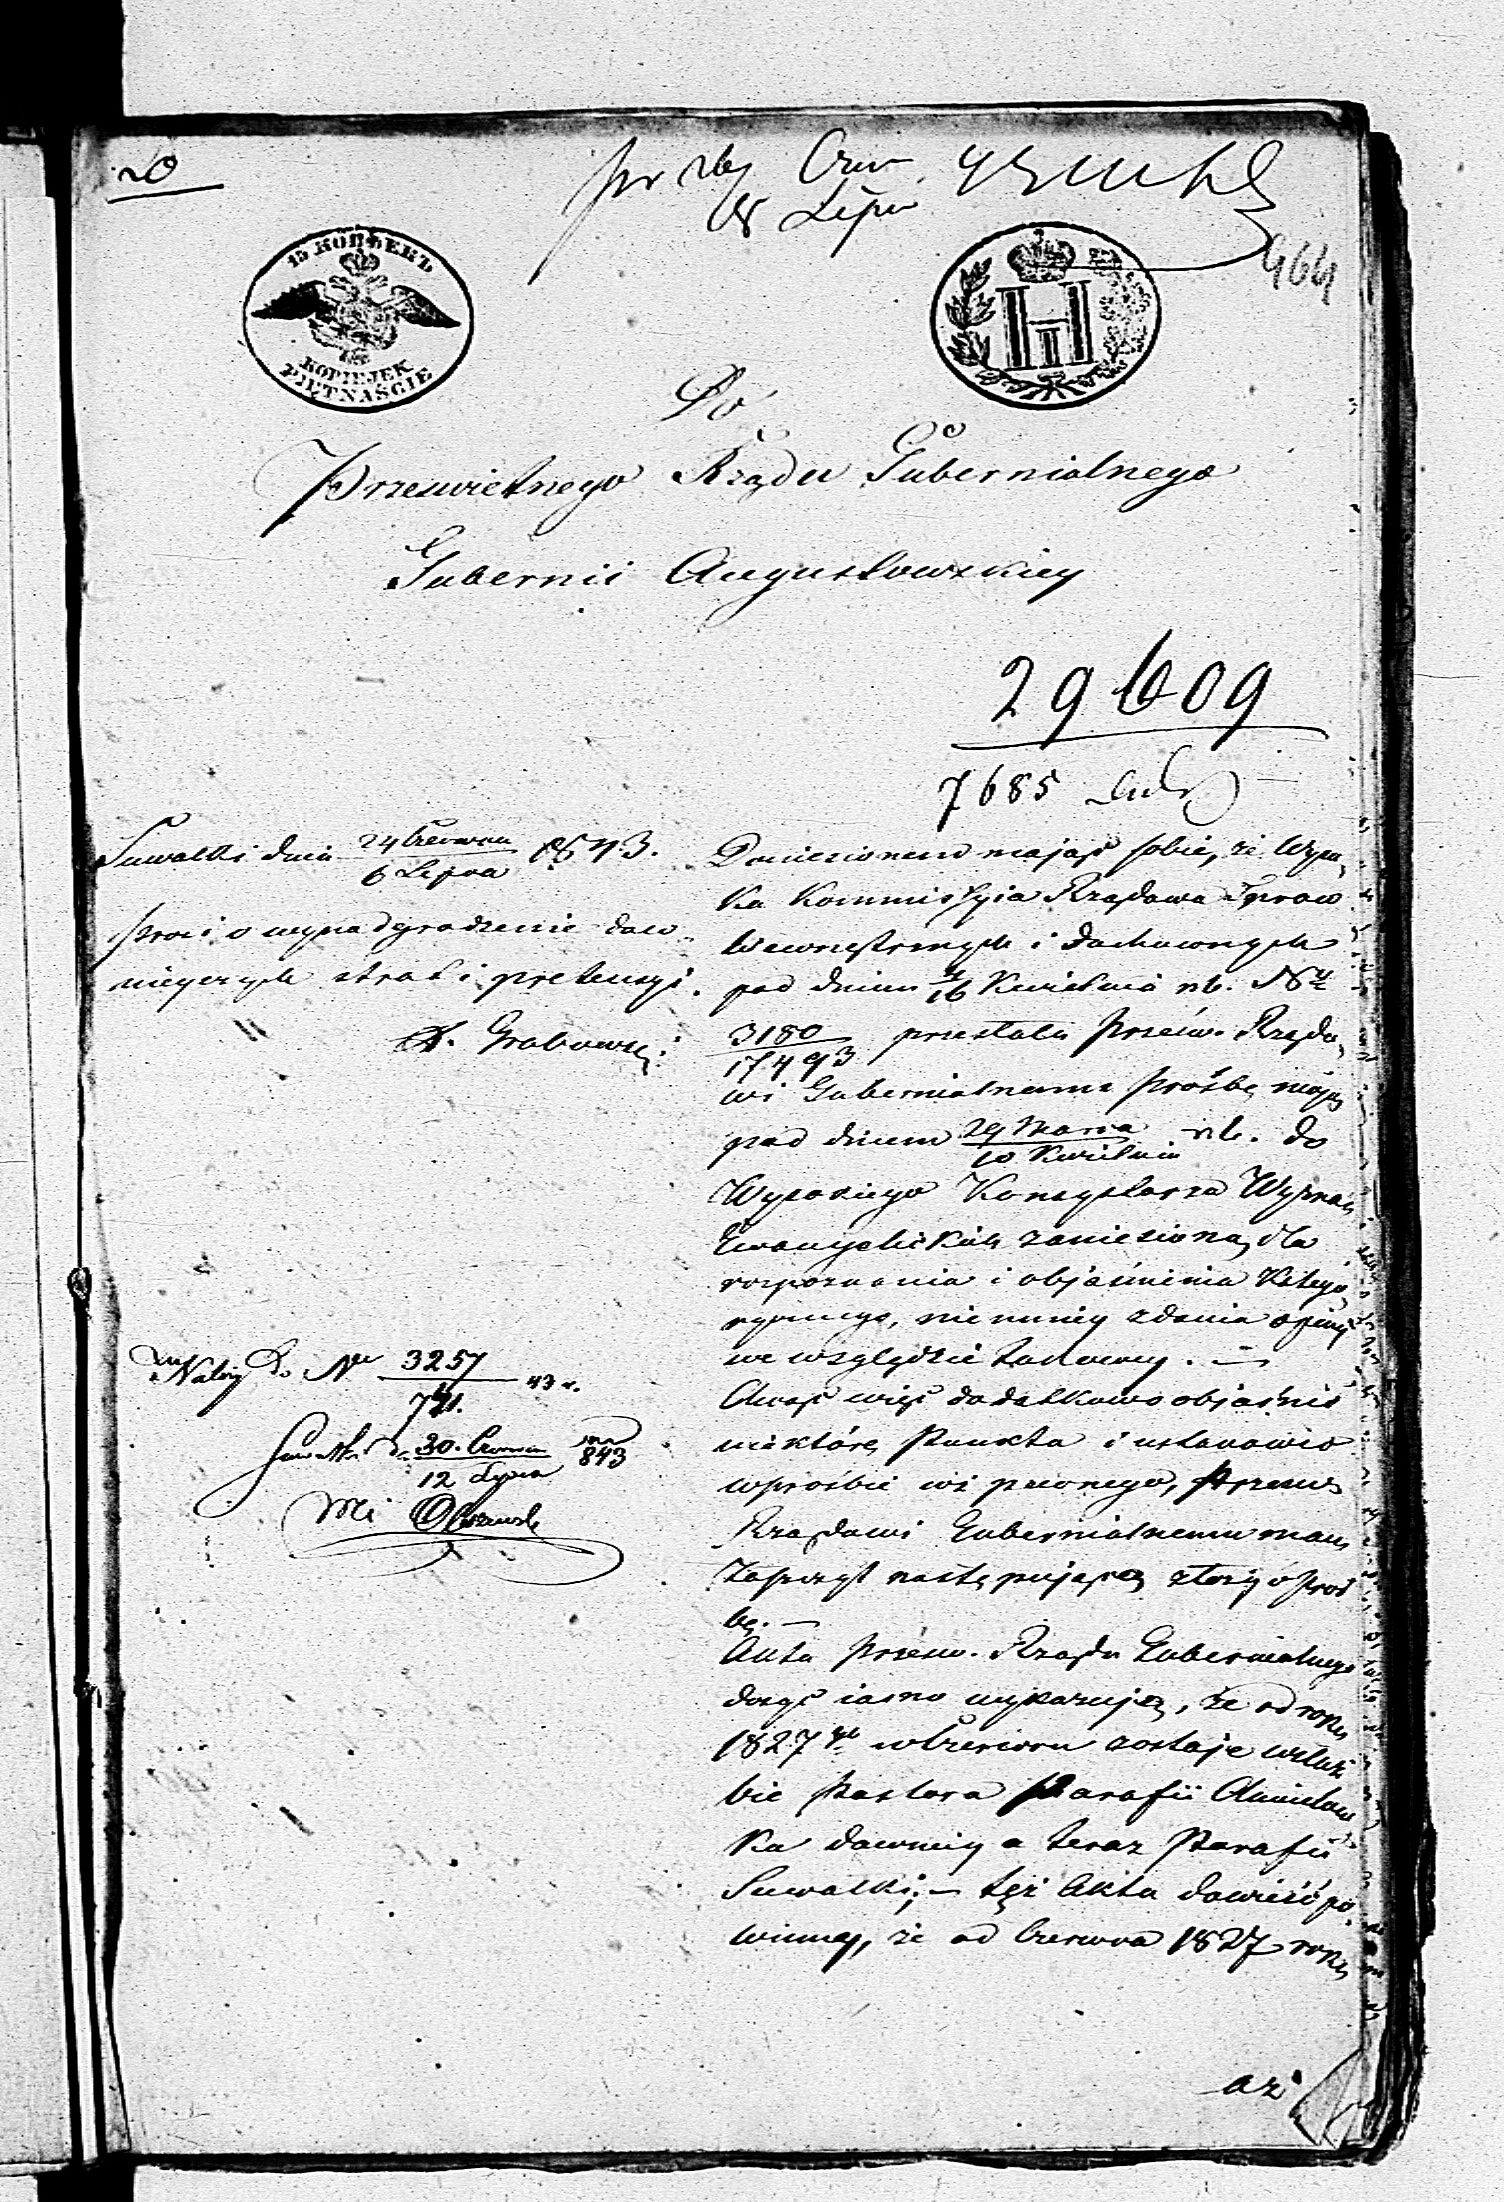 20
pr 26 Czer
8 Lipca
464
15 КОПѢЕКЪ
KOPIEJEK
PIĘTNAŚCIE
Do
Prześwietnego Rządu Gubernialnego
Gubernii Augustowskiey
29609
7685
Suwałki dnia 24 Czerwca / 6 Lipca 1843.
prosi o wynadgrodzenie daw-
nieyszych strat i pretensyi.
A. Grabowski
Należy do Nru 3257 / 741. 43 r.
Suwałki d. 30. Czerwca / 12 Lipca 843
Doniesionem mając sobie, że Wyso-
ka Kommissyia Rządowa Spraw
Wewnętrznych i Duchownych
pod dniem 4/16 Kwietnia rb. Nr
3180 / 17493 przesłała Prześw. Rządo-
wi Gubernialnemu prośbę moję
pod dniem 29 Marca / 10 Kwietnia rb. do
Wysokiego Konsystorza Wyznań
Ewangelickich zaniesioną, dla
rozpoznania i objaśnienia Katego-
rycznego, niemniey zdania opinii
we względzie takowey. —
Chcąc więc dodatkowo objaśnić
niektóre Punkta i ustanowić
w prośbie coś pewnego, Prześw.
Rządowi Gubernialnemu mam
zaszczyt następującą złożyć proś
bę. —
Akta Prześw. Rządu Gubernialnego
dosyć iasno wykazują, że od roku
1827 go w Czerwcu zostaje w służ
bie Pastora Parafii
ka dawniey a teraz Parafii
Suwałki; — też Akta dowieść po-
winny, że od Czerwca 1827 roku
aż